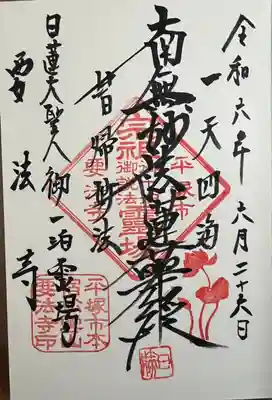 令和六年六月二十六日
一天四海
南無妙法蓮華経
皆帰妙法
日蓮大聖人御一泊霊場
要法寺
平塚市
宗祖
霊場
要法寺
平塚市
要法寺印